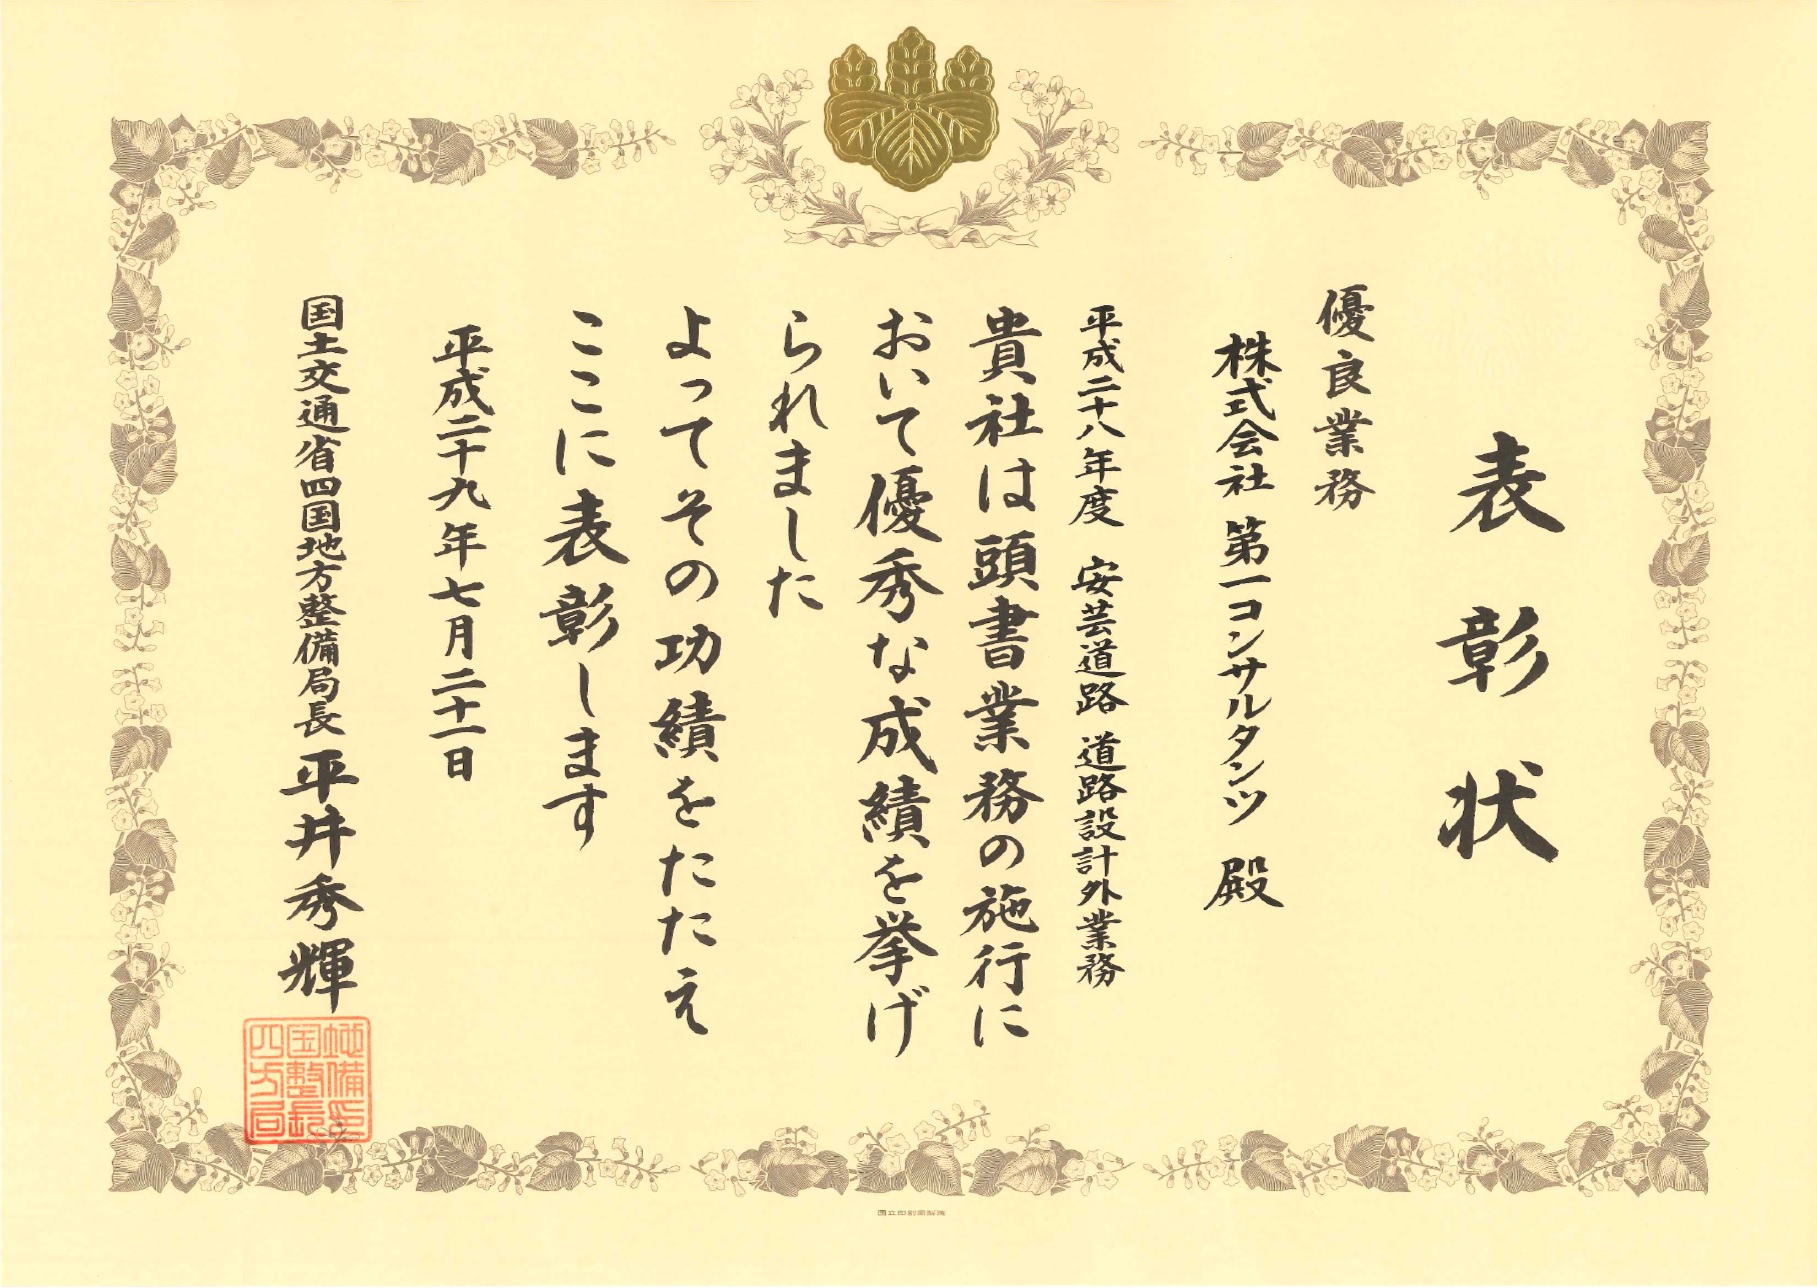 表彰状
優良業務
株式会社 第一コンサルタンツ 殿
平成二十八年度 安芸道路 道路設計外業務
貴社は頭書業務の施行に
おいて優秀な成績を挙げ
られました
よってその功績をたたえ
ここに表彰します
平成二十九年七月二十一日
国土交通省四国地方整備局長 平井秀輝
地備印
国整長
四方局
国立印刷局製造